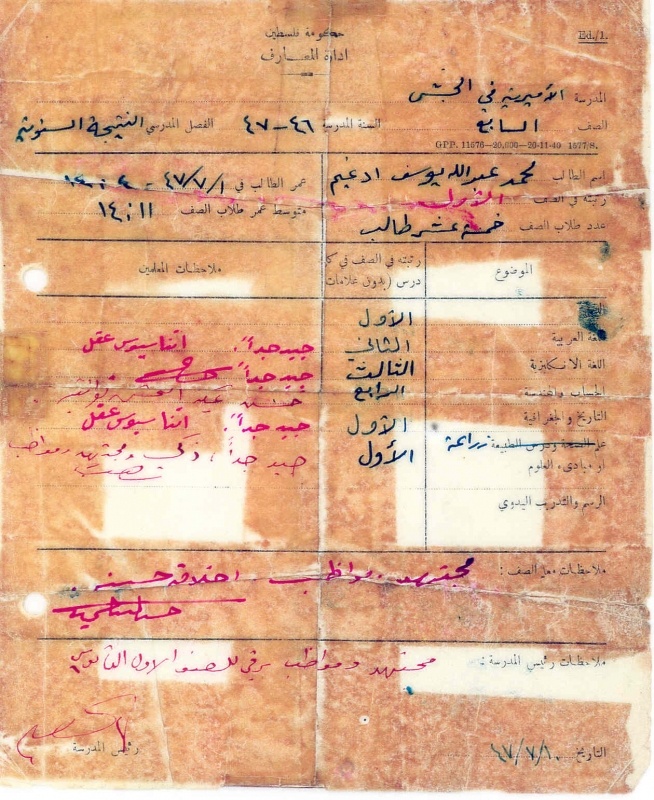 حكومة فلسطين
Ed./1.
ادارة المعارف
المدرسة الأميرية في الجش
الصف السابع السنة المدرسية ٤٦-٤٧ الفصل المدرسي النتيجة السنوية
GPP. 11576—20,000—20-11-40 1577/S.
اسم الطالب محمد عبدالله يوسف ادغيم عمر الطالب في ٤٧/٧/١
رتبته في الصف الأول
عدد طلاب الصف خمسة عشر طالب متوسط عمر طلاب الصف ١٤:١١
الموضوع رتبته في الصف في كل درس (بدون علامات ملاحظات المعلمين
الأول
اللغة العربية الثاني جيد جداً. اتناسيوس عقل
اللغة الانكليزية الثالث جيد جداً.
الحساب والهندسة الرابع
التاريخ والجغرافية الأول جيد جداً. اتناسيوس عقل
علم الصحة ودرس الطبيعة زراعة الأول جيد جداً، ذكي ومجتهد ومواظب
او مبادىء العلوم
الرسم والتدريب اليدوي
ملاحظات معلم الصف : مجتهد مواظب اخلاقه حسنة.
ملاحظات رئيس المدرسة : مجتهد ومواظب يرقى للصف الاول الثانوي
التاريخ ٤٧/٧/١٠ رئيس المدرسة